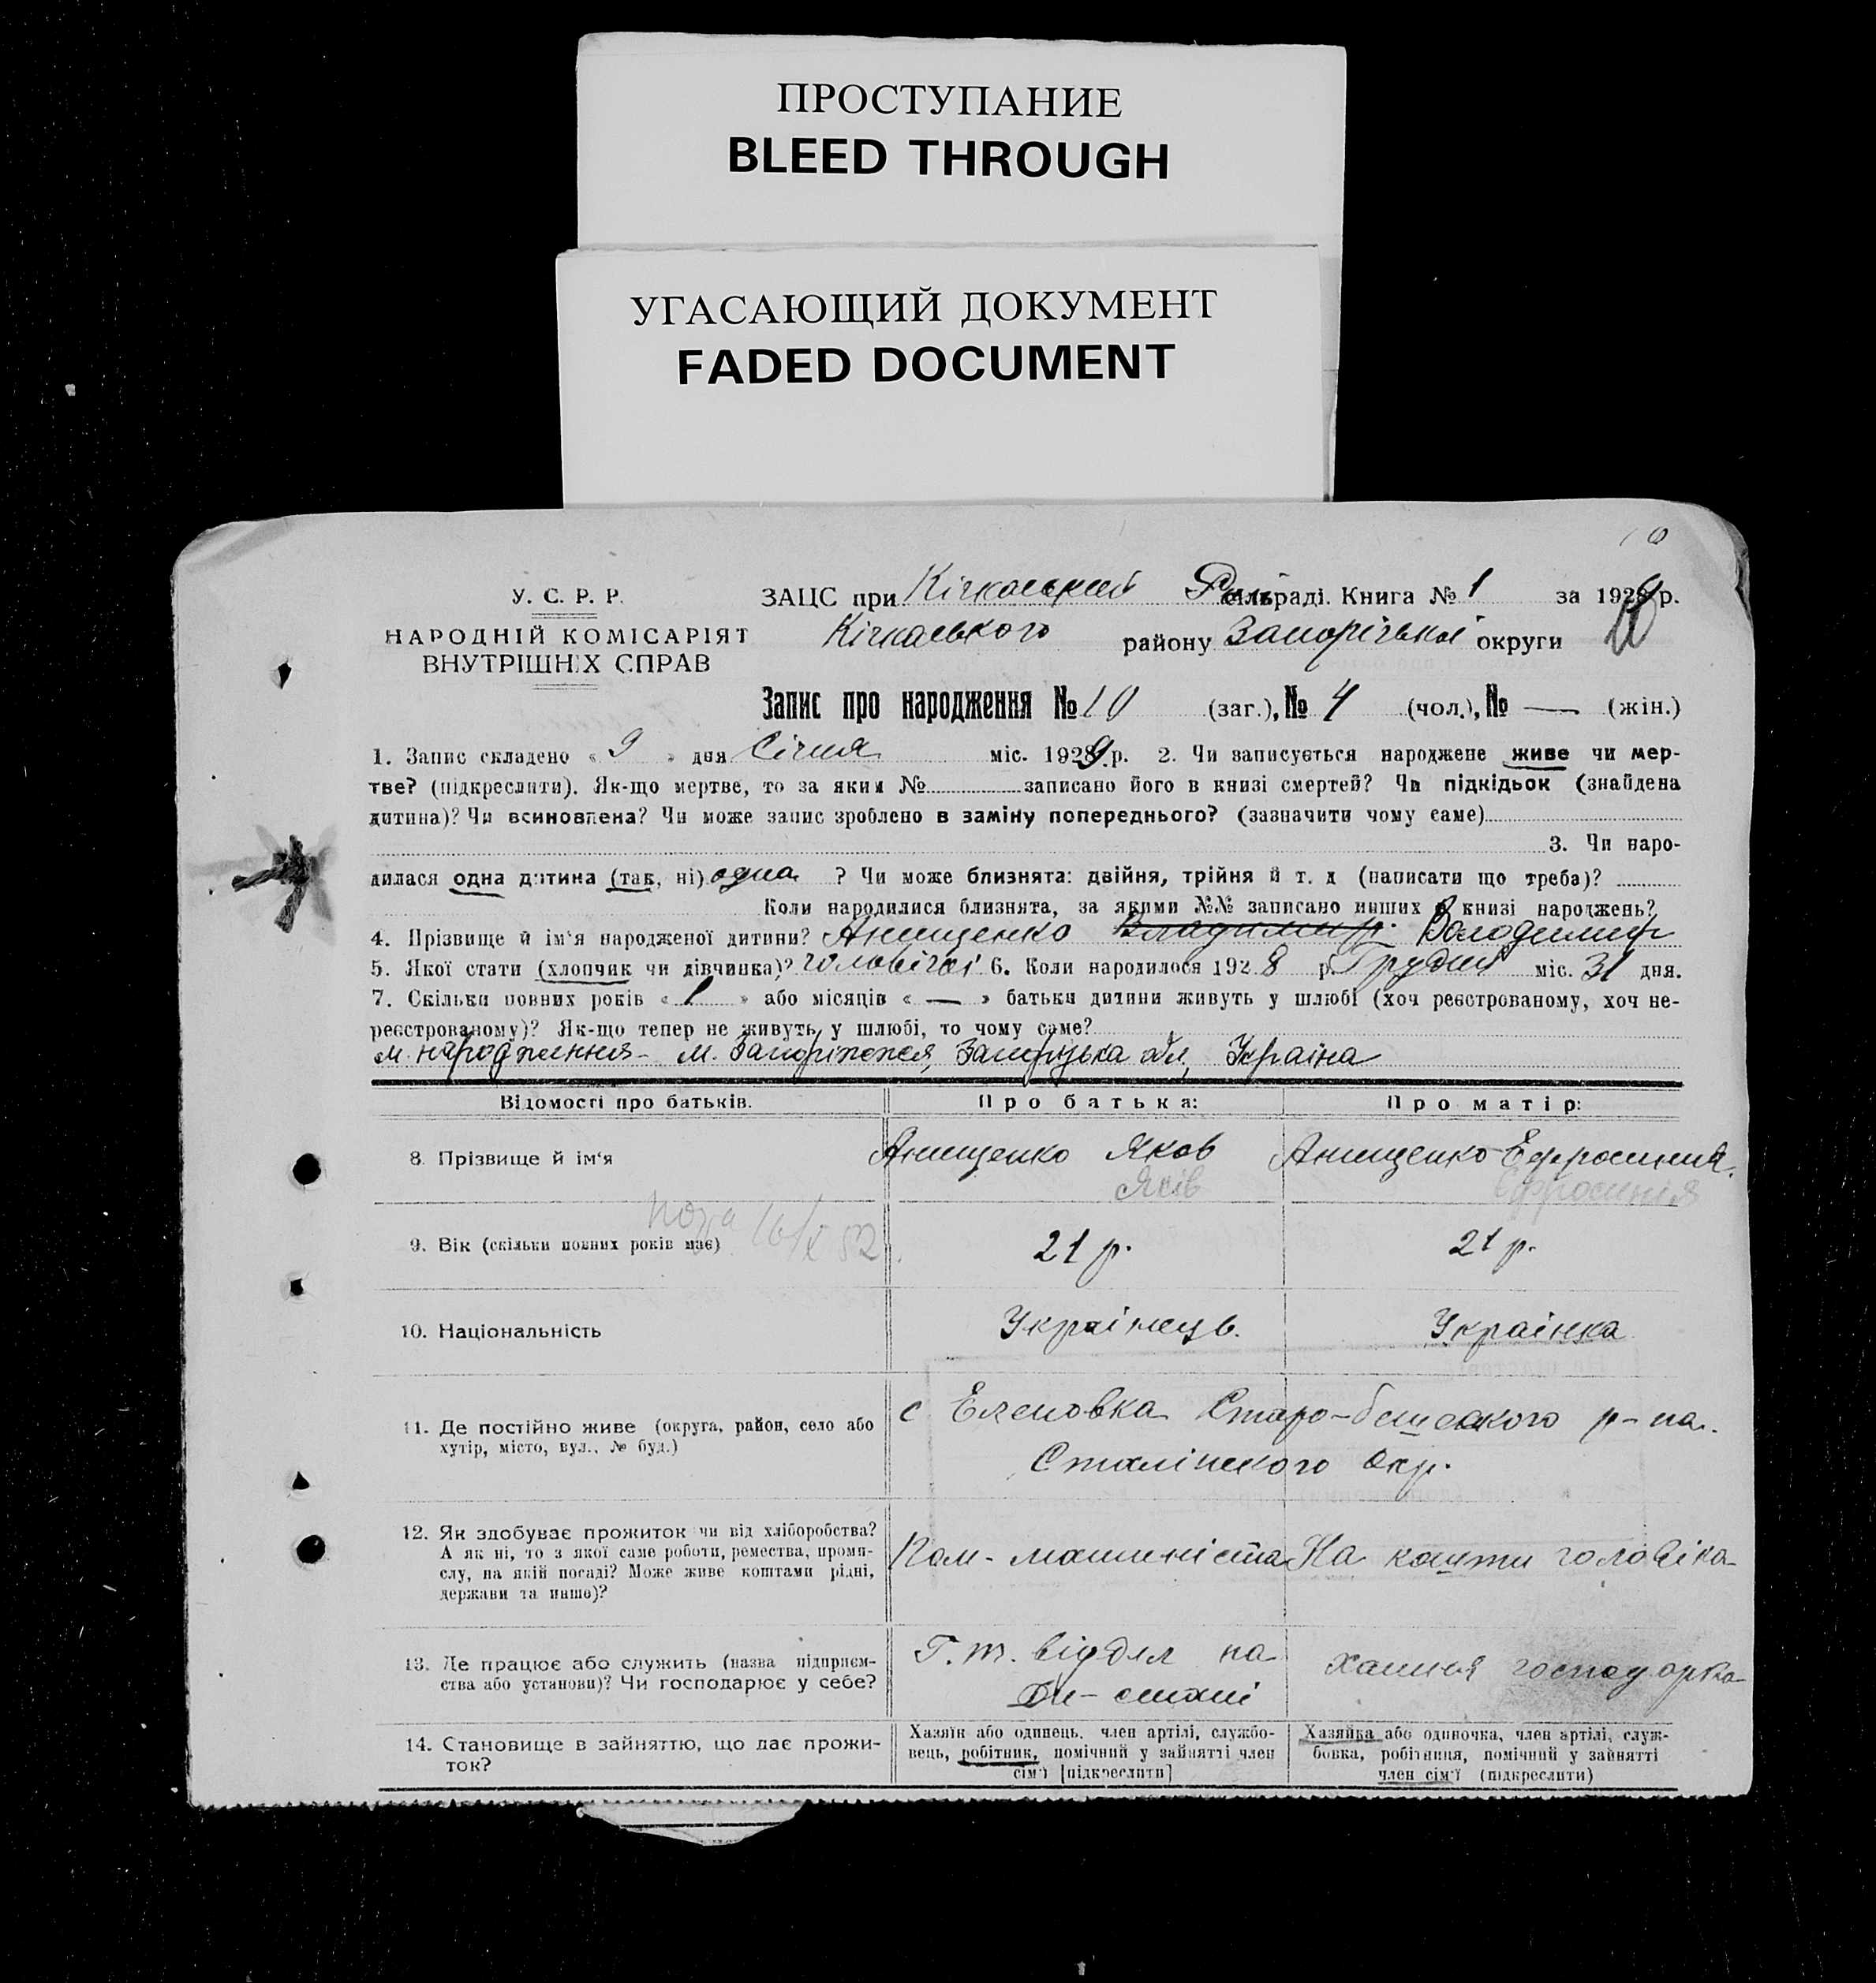 ПРОСТУПАНИЕ
BLEED THROUGH
УГАСАЮЩИЙ ДОКУМЕНТ
FADED DOCUMENT
У. С. Р. Р.
НАРОДНІЙ КОМІСАРІЯТ
ВНУТРІШНІХ СПРАВ
ЗАЦС при Кічкаський сільраді. Книга № 1 за 1929 р.
Кічкаського району Запорізької округи
Запис про народження № 10 (заг.), № 4 (чол.), № — (жін.)
1. Запис складено « 9 » дня Січня міс. 1929 р. 2. Чи записується народжене живе чи мер-
тве? (підкреслити). Як-що мертве, то за яким № записано його в книзі смертей? Чи підкідьок (знайдена
дитина)? Чи всиновлена? Чи може запис зроблено в заміну попереднього? (зазначити чому саме)
3. Чи наро-
дилася одна дитина (так, ні) одна ? Чи може близнята: двійня, трійня й т. д (написати що треба)?
Коли народилися близнята, за якими №№ записано инших в книзі народжень?
4. Прізвище й ім'я народженої дитини? Анищенко Владимир. Володимир
5. Якої стати (хлопчик чи дівчинка)? чоловічої 6. Коли народилося 1928 р. Грудня міс. 31 дня.
7. Скільки повних років « 1 » або місяців « — » батьки дитини живуть у шлюбі (хоч реєстрованому, хоч не-
реєстрованому)? Як-що тепер не живуть у шлюбі, то чому саме?
м. народження - м. Запоріжжя, Запорізька обл, Україна
Відомості про батьків. Про батька: Про матір:
8. Прізвище й ім'я Анищенко Яков Анищенко Ефросиния.
Яків Єфросинія
9. Вік (скільки повних років має) 21 р. 21 р.
10. Національність Українець. Українка
11. Де постійно живе (округа, район, село або
хутір, місто, вул., № буд.)
с Еленовка Старо-бешевского р-на.
Сталінского окр.
12. Як здобуває прожиток чи від хліборобства?
А як ні, то з якої саме роботи, ремества, проми-
слу, на якій посаді? Може живе коштами рідні,
держави та инше)?
Пом-машиніста На кошти чоловіка
13. Де працює або служить (назва підприєм-
ства або установи)? Чи господарює у себе?
Г. т. відділ на
хатня господарка
14. Становище в зайняттю, що дає прожи-
ток?
Хазяїн або одинець, член артілі, службо-
вець, робітник, помічний у зайнятті член
сім'ї [підкреслити]
Хазяйка або одиночка, член артілі, служ-
бовка, робітниця, помічний у зайнятті
член сім'ї (підкреслити)